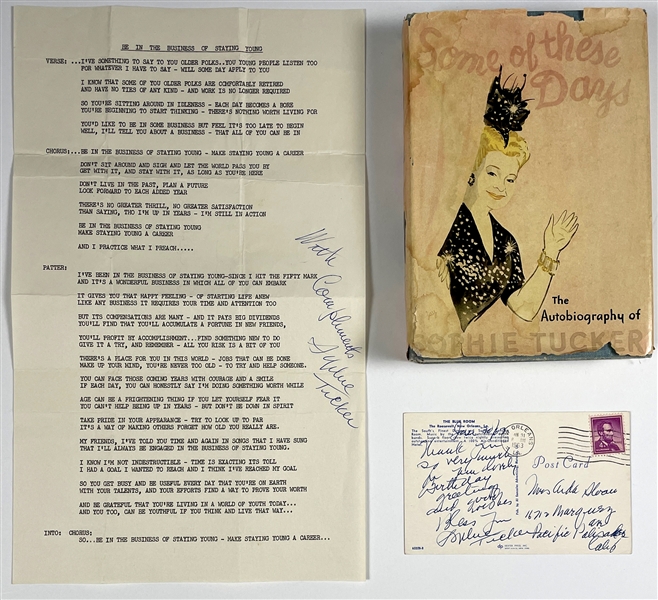 BE IN THE BUSINESS OF STAYING YOUNG
VERSE: ...I'VE SOMETHING TO SAY TO YOU OLDER FOLKS..YOU YOUNG PEOPLE LISTEN TOO
FOR WHATEVER I HAVE TO SAY - WILL SOME DAY APPLY TO YOU
I KNOW THAT SOME OF YOU OLDER FOLKS ARE COMFORTABLY RETIRED
AND HAVE NO TIES OF ANY KIND - AND WORK IS NO LONGER REQUIRED
SO YOU'RE SITTING AROUND IN IDLENESS - EACH DAY BECOMES A BORE
YOU'RE BEGINNING TO START THINKING - THERE'S NOTHING WORTH LIVING FOR
YOU'D LIKE TO BE IN SOME BUSINESS BUT FEEL IT'S TOO LATE TO BEGIN
WELL, I'LL TELL YOU ABOUT A BUSINESS - THAT ALL OF YOU CAN BE IN
CHORUS:...BE IN THE BUSINESS OF STAYING YOUNG - MAKE STAYING YOUNG A CAREER
DON'T SIT AROUND AND SIGH AND LET THE WORLD PASS YOU BY
GET WITH IT, AND STAY WITH IT, AS LONG AS YOU'RE HERE
DON'T LIVE IN THE PAST, PLAN A FUTURE
LOOK FORWARD TO EACH ADDED YEAR
THERE'S NO GREATER THRILL, NO GREATER SATISFACTION
THAN SAYING, THO I'M UP IN YEARS - I'M STILL IN ACTION
BE IN THE BUSINESS OF STAYING YOUNG
MAKE STAYING YOUNG A CAREER
AND I PRACTICE WHAT I PREACH.....
PATTER:
I'VE BEEN IN THE BUSINESS OF STAYING YOUNG-SINCE I HIT THE FIFTY MARK
AND IT'S A WONDERFUL BUSINESS IN WHICH ALL OF YOU CAN EMBARK
IT GIVES YOU THAT HAPPY FEELING - OF STARTING LIFE ANEW
LIKE ANY BUSINESS IT REQUIRES YOUR TIME AND ATTENTION TOO
BUT ITS COMPENSATIONS ARE MANY - AND IT PAYS BIG DIVIDENDS
YOU'LL FIND THAT YOU'LL ACCUMULATE A FORTUNE IN NEW FRIENDS,
YOU'LL PROFIT BY ACCOMPLISHMENT...FIND SOMETHING NEW TO DO
GIVE IT A TRY, AND REMEMBER - ALL YOU RISK IS A BIT OF YOU
THERE'S A PLACE FOR YOU IN THIS WORLD - JOBS THAT CAN BE DONE
MAKE UP YOUR MIND, YOU'RE NEVER TOO OLD - TO TRY AND HELP SOMEONE.
YOU CAN FACE THOSE COMING YEARS WITH COURAGE AND A SMILE
IF EACH DAY, YOU CAN HONESTLY SAY I'M DOING SOMETHING WORTH WHILE
AGE CAN BE A FRIGHTENING THING IF YOU LET YOURSELF FEAR IT
YOU CAN'T HELP BEING UP IN YEARS - BUT DON'T BE DOWN IN SPIRIT
TAKE PRIDE IN YOUR APPEARANCE - TRY TO LOOK UP TO PAR
IT'S A WAY OF MAKING OTHERS FORGET HOW OLD YOU REALLY ARE.
MY FRIENDS, I'VE TOLD YOU TIME AND AGAIN IN SONGS THAT I HAVE SUNG
THAT I'LL ALWAYS BE ENGAGED IN THE BUSINESS OF STAYING YOUNG.
I KNOW I'M NOT INDESTRUCTIBLE - TIME IS EXACTING ITS TOLL
I HAD A GOAL I WANTED TO REACH AND I THINK I'VE REACHED MY GOAL
SO YOU GET BUSY AND BE USEFUL EVERY DAY THAT YOU'RE ON EARTH
WITH YOUR TALENTS, AND YOUR EFFORTS FIND A WAY TO PROVE YOUR WORTH
AND BE GRATEFUL THAT YOU'RE LIVING IN A WORLD OF YOUTH TODAY...
AND YOU TOO, CAN BE YOUTHFUL IF YOU THINK AND LIVE THAT WAY...
INTO: CHORUS:
SO...BE IN THE BUSINESS OF STAYING YOUNG - MAKE STAYING YOUNG A CAREER...
With
Compliments
Sophie
Tucker
Some of these
Days
The
Autobiography of
SOPHIE TUCKER
THE BLUE ROOM
The Roosevelt, New Orleans, La.
ORLEANS
Post Card
Thank you
so very much
for
Birthday
greeting
and good
Bless you
Sophie
Tucker
Mrs
Sloan
Marquez
Pacific Palisades
Calif